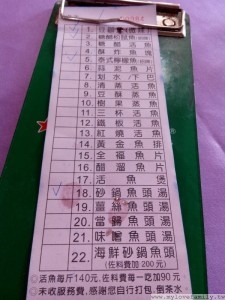 1. 豆
2. 糖醋松鼠魚
3. 糖醋活魚
4. 酥炸魚塊
5. 泰式檸檬魚
6. 蒜泥魚片
7. 划水/下巴
8. 清蒸活魚
9. 豆酥蒸魚
10. 樹菓蒸魚
11. 三杯活魚
12. 鐵板活魚
13. 紅燒活魚
14. 黃金魚排
15. 全福魚片
16. 醋溜魚片
17. 活魚煲
18. 砂鍋魚頭湯
19. 薑絲魚頭湯
20. 當歸魚頭湯
21. 味噌魚頭湯
22. 海鮮砂鍋魚頭湯
(佐料費加200元)
◎活魚每斤140元,佐料費每一吃加90元
◎未收服務費,感謝您自行打包、倒茶水
www.mylovefamily.tw